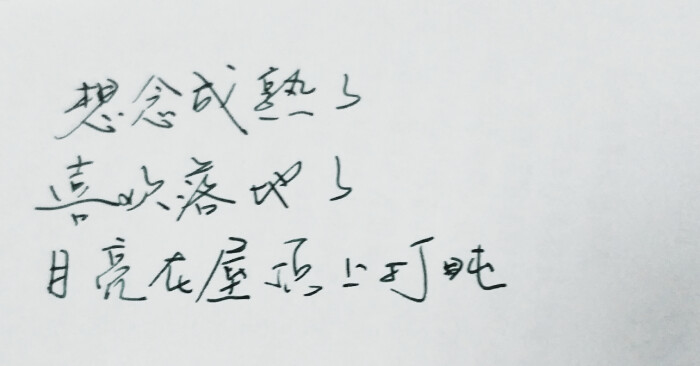 想念成熟了
喜欢落地了
月亮在屋顶上打盹